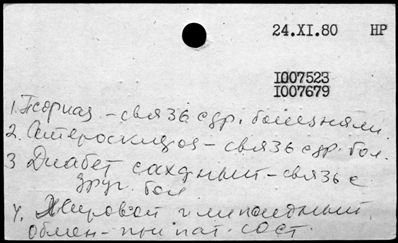 24.XI.80 НР
I007523
I007679
1. Псориаз - связь с др. болезнями.
2. Атеросклероз - связь с др. бол.
3 Диабет сахарный - связь с
друг. бол
4. Жировой и липоидный
обмен - при пат. сост.